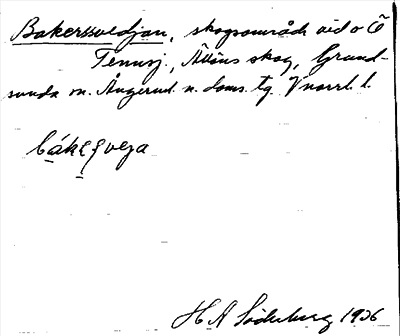 Bakersvedjan, skogsområde vid o Ö
Tennsj., Älläns skog, Grund-
sunda sn. Ångerml. n. doms. tg. Vnorrl. l.
bákesveja
H A Söderberg 1936